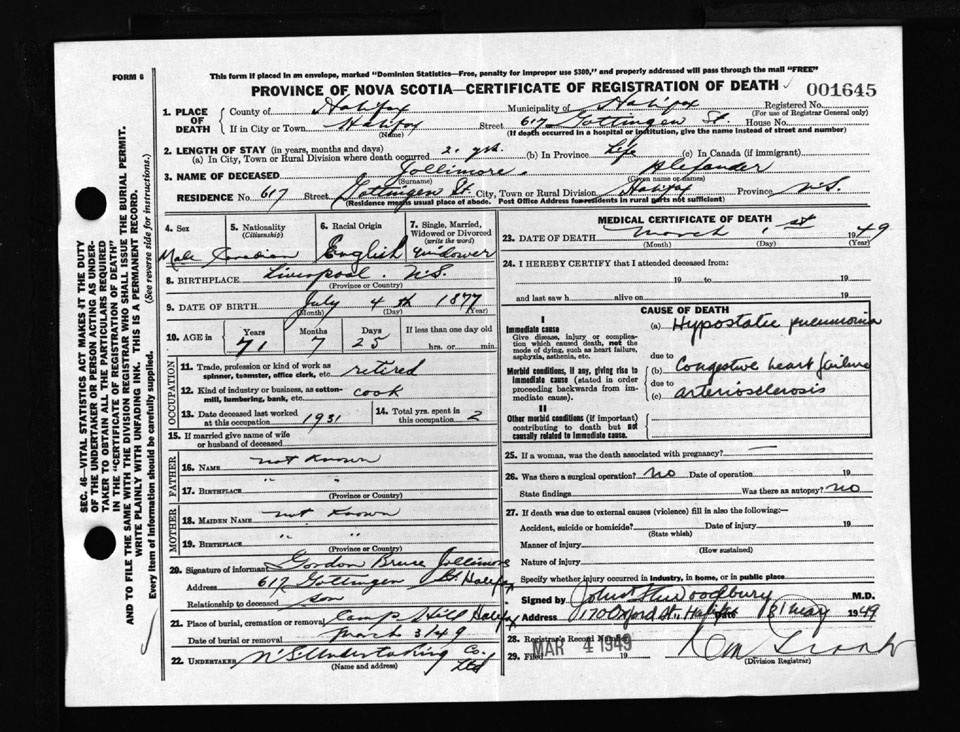 FORM 6
This form if placed in an envelope, marked "Dominion Statistics—Free, penalty for improper use $300," and properly addressed will pass through the mail "FREE"
PROVINCE OF NOVA SCOTIA—CERTIFICATE OF REGISTRATION OF DEATH
001645
1. PLACE OF DEATH
County of Halifax Municipality of Halifax Registered No.
(For use of Registrar General only)
If in City or Town Halifax Street 617 Gottingen St. House No.
(Name) (If death occurred in a hospital or institution, give the name instead of street and number)
2. LENGTH OF STAY (in years, months and days)
(a) In City, Town or Rural Division where death occurred 2. yrs. (b) In Province Life (c) In Canada (if immigrant)
3. NAME OF DECEASED Jollimore. Alexander
(Surname) (Given name or names)
RESIDENCE No. 617 Gottingen St. City, Town or Rural Division Halifax Province N.S.
(Residence means usual place of abode. Post Office Address for residents in rural parts not sufficient)
4. Sex
5. Nationality
(Citizenship)
6. Racial Origin
7. Single, Married, Widowed or Divorced
(write the word)
Male Canadian English Widower
8. BIRTHPLACE Liverpool. N.S.
(Province or Country)
9. DATE OF BIRTH July 4th 1877
(Month) (Day) (Year)
10. AGE in Years Months Days If less than one day old
71 7 25 hrs. or min.
OCCUPATION
11. Trade, profession or kind of work as spinner, teamster, office clerk, etc. retired
12. Kind of industry or business, as cotton-mill, lumbering, bank, etc. cook
13. Date deceased last worked at this occupation 1931
14. Total yrs. spent in this occupation 2
15. If married give name of wife or husband of deceased
FATHER
16. Name not known
17. Birthplace " "
(Province or Country)
MOTHER
18. Maiden Name not known
19. Birthplace " "
(Province or Country)
20. Signature of informant Gordon Bruce Jollimore
Address 617 Gottingen St. Halifax
Relationship to deceased son
21. Place of burial, cremation or removal Camp Hill Halifax
Date of burial or removal March 3/49
22. Undertaker N.S. Undertaking Co. Ltd
(Name and address)
MEDICAL CERTIFICATE OF DEATH
23. DATE OF DEATH March 1st 1949
(Month) (Day) (Year)
24. I HEREBY CERTIFY that I attended deceased from:
19 to 19
and last saw h alive on 19
CAUSE OF DEATH
I
Immediate cause
Give disease, injury or complication which caused death, not the mode of dying, such as heart failure, asphyxia, asthenia, etc.
(a) Hypostatic pneumonia
due to
Morbid conditions, if any, giving rise to immediate cause (stated in order proceeding backwards from immediate cause).
(b) Congestive heart failure
due to
(c) arteriosclerosis
II
Other morbid conditions (if important) contributing to death but not causally related to immediate cause.
25. If a woman, was the death associated with pregnancy?
26. Was there a surgical operation? No Date of operation 19
State findings Was there an autopsy? no
27. If death was due to external causes (violence) fill in also the following:—
Accident, suicide or homicide? Date of injury 19
(State which)
Manner of injury
(How sustained)
Nature of injury
Specify whether injury occurred in industry, in home, or in public place
Signed by Woodbury M.D.
Address 170 Oxford St., Halifax Date 31 May 1949
28. Registrar's Record Number
29. Filed MAR 4 1949 19
(Division Registrar)
SEC. 46—VITAL STATISTICS ACT MAKES AT THE DUTY
OF THE UNDERTAKER OR PERSON ACTING AS UNDER-
TAKER TO OBTAIN ALL THE PARTICULARS REQUIRED
IN THE "CERTIFICATE OF REGISTRATION OF DEATH"
AND TO FILE THE SAME WITH THE DIVISION REGISTRAR WHO SHALL ISSUE THE BURIAL PERMIT.
WRITE PLAINLY WITH UNFADING INK. THIS IS A PERMANENT RECORD.
Every item of information should be carefully supplied. (See reverse side for instructions.)